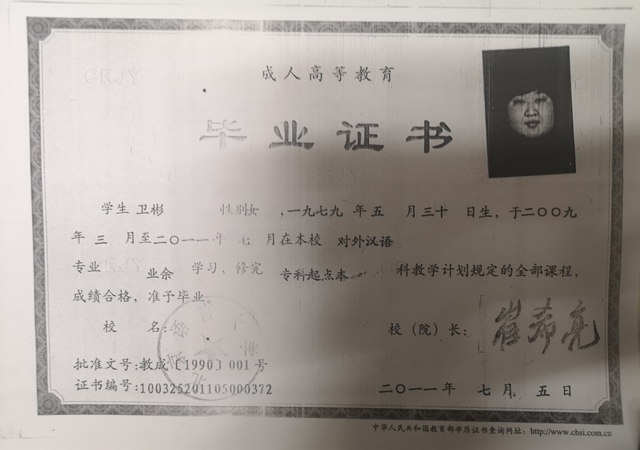 成人高等教育
毕业证书
学生 卫彬 性别女 ,一九七九 年五 月三十 日生,于二〇〇九
年 三 月至二〇一一年 七 月在本校 对外汉语
专业 业余 学习,修完 专科起点本 科教学计划规定的全部课程,
成绩合格,准予毕业
校 名: 校(院)长: 崔希亮
批准文号:教成〔1990〕001号
证书编号:100325201105000372 二〇一一年 七 月 五 日
中华人民共和国教育部学历证书查询网址:http://www.chsi.com.cn